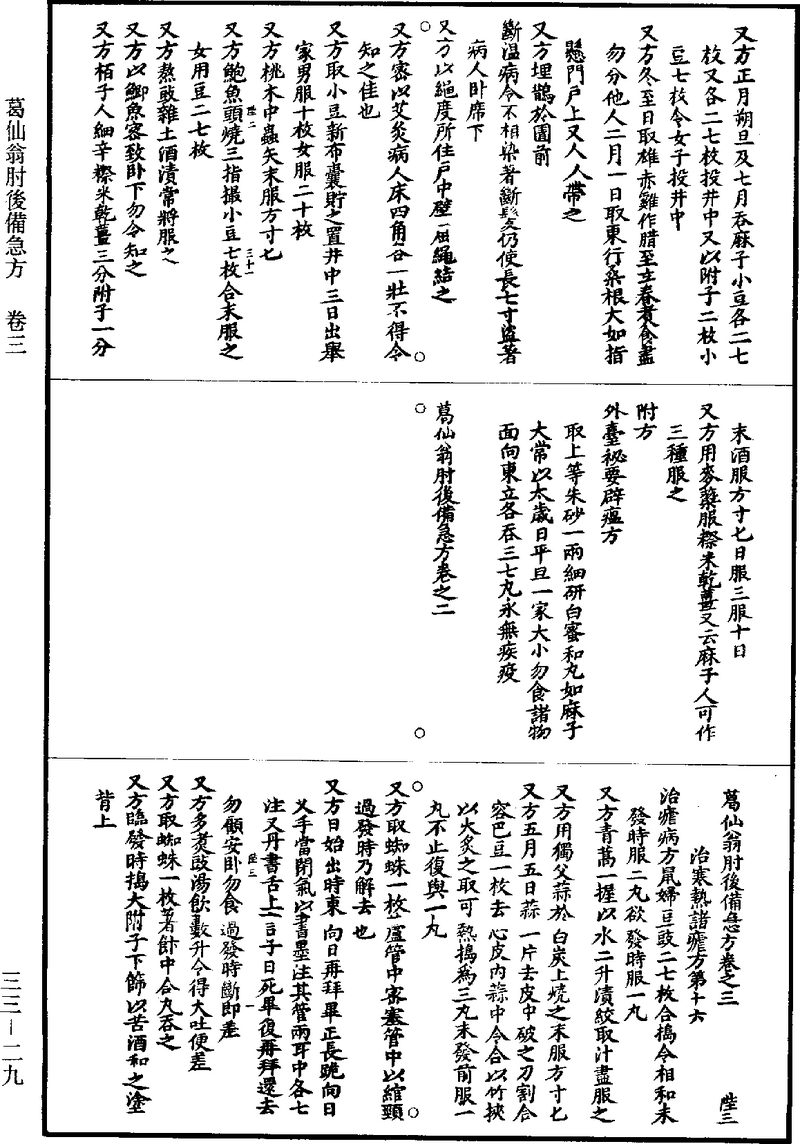 葛仙翁肘後備急方　卷三
又方正月朔旦及七月吞麻子小豆各二七
枚又各二七枚投井中又以附子二枚小
豆七枚令女子投井中
又方冬至日取雄赤雞作腊至立春煮食盡
勿分他人二月一日取東行桑根大如指
懸門戶上又人人帶之
又方埋鵲於圊前
斷温病令不相染著斷髮仍使長七寸盜著
病人卧席下
又方以繩度所住戶中壁屈繩結之
又方密以艾灸病人床四角各一壯不得令
知之佳也
又方取小豆新布囊貯之置井中三日出舉
家男服十枚女服二十枚
又方桃木中蟲矢末服方寸匕
又方鮑魚頭燒三指撮小豆七枚合末服之
女用豆二七枚
又方熬豉雜土酒漬常將服之
又方以鯽魚密致卧下勿令知之
又方栢子人細辛穄米乾薑三分附子一分
陸二
三十一
末酒服方寸匕日服三服十日
又方用麥蘗服穄米乾薑又云麻子人可作
三種服之
附方
外臺祕要辟瘟方
取上等朱砂一兩細研白蜜和丸如麻子
大常以太歲日平旦一家大小勿食諸物
面向東立各吞三七丸永無疾疫
葛仙翁肘後備急方卷之二
葛仙翁肘後備急方卷之三
陸三
治寒熱諸瘧方第十六
治瘧病方鼠婦豆豉二七枚合搗令相和未
發時服二丸欲發時服一丸
又方青蒿一握以水二升漬絞取汁盡服之
又方用獨父蒜於白炭上燒之末服方寸匕
又方五月五日蒜一片去皮中破之刀割合
容巴豆一枚去心皮內蒜中令合以竹挾
以火炙之取可熱搗為三丸未發前服一
丸不止復與一丸
又方取蜘蛛一枚蘆管中密塞管中以綰頸
過發時乃解去也
又方日始出時東向日再拜畢正長跪向日
叉手當閉氣以書墨注其管兩耳中各七
注又丹書舌上言子日死畢復再拜還去
勿顧安卧勿食過發時斷即差
又方多煮豉湯飲數升令得大吐便差
又方取蜘蛛一枚著飰中合丸吞之
又方臨發時搗大附子下篩以苦酒和之塗
背上
陸三
一
三三－二九